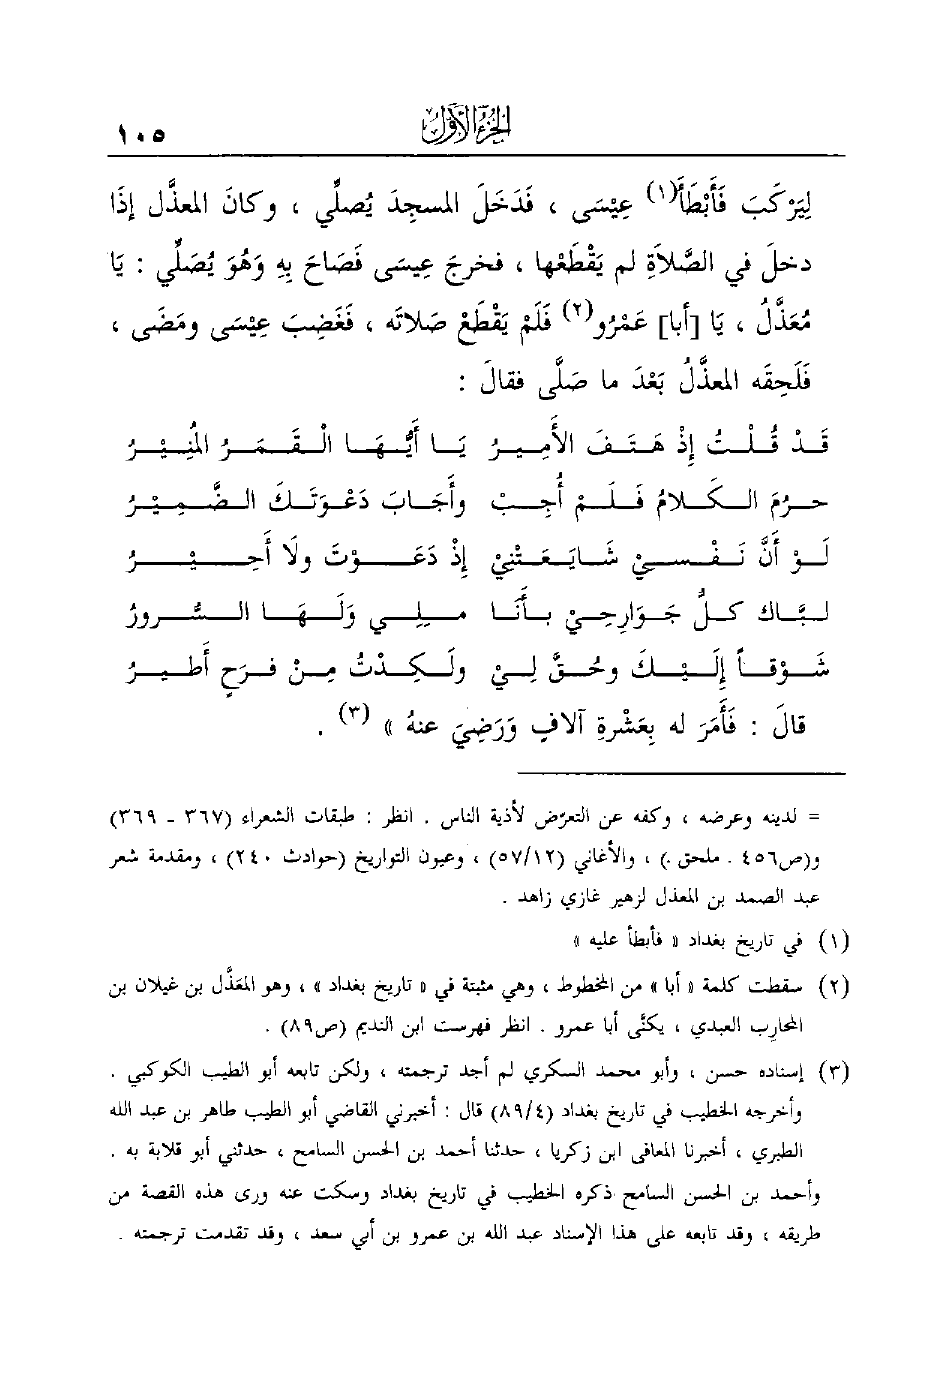 الجزء الأول
١٠٥
لِيَرْكَبَ فَأَبْطَأَ(١) عِيْسَى ، فَدَخَلَ المسجِدَ يُصلِّي ، وكانَ المعذَّل إذَا
دخلَ في الصَّلاَةِ لم يَقْطَعْها ، فخرجَ عِيسَى فَصَاحَ بِهِ وَهُوَ يُصَلِّي : يَا
مُعَذَّلُ ، يَا [أبا] عَمْرُو(٢) فَلَمْ يَقْطَعْ صَلاتَه ، فَغَضِبَ عِيْسَى ومَضَى ،
فَلَحِقَه المعذَّلُ بَعْدَ ما صَلَّى فقالَ :
قَدْ قُلْتُ إِذْ هَتَفَ الأَمِيرُ يَا أَيُّهَا الْقَمَرُ المُنِيْرُ
حرُمَ الكَلامُ فَلَمْ أُجِبْ وأَجَابَ دَعْوَتَكَ الضَّمِيْرُ
لَوْ أَنَّ نَفْسِيْ شَايَعَتْنِيْ إِذْ دَعَوْتَ ولَا أَحِيْرُ
لبَّاك كلُّ جَوَارِحِيْ بأَنَا مِلِي وَلَهَا السُّرورُ
شَوْقاً إِلَيْكَ وحُقَّ لِيْ ولَكِدْتُ مِنْ فَرَحٍ أَطيرُ
قالَ : فَأَمَرَ له بِعَشْرةِ آلافٍ وَرَضِيَ عنهُ » (٣) .
= لدينه وعرضه ، وكفه عن التعرّض لأذية الناس . انظر : طبقات الشعراء (٣٦٧ ـ ٣٦٩)
و(ص٤٥٦ . ملحق .) ، والأغاني (٥٧/١٢) ، وعيون التواريخ (حوادث ٢٤٠) ، ومقدمة شعر
عبد الصمد بن المعذل لزهير غازي زاهد .
(١) في تاريخ بغداد « فأبطأ عليه »
(٢) سقطت كلمة « أبا » من المخطوط ، وهي مثبتة في « تاريخ بغداد » ، وهو المعَذَّل بن غيلان بن
المحارِب العبدي ، يكنَّى أبا عمرو . انظر فهرست ابن النديم (ص٨٩) .
(٣) إسناده حسن ، وأبو محمد السكري لم أجد ترجمته ، ولكن تابعه أبو الطيب الكوكبي .
وأخرجه الخطيب في تاريخ بغداد (٨٩/٤) قال : أخبرني القاضي أبو الطيب طاهر بن عبد الله
الطبري ، أخبرنا المعافى ابن زكريا ، حدثنا أحمد بن الحسن السامح ، حدثني أبو قلابة به .
وأحمد بن الحسن السامح ذكره الخطيب في تاريخ بغداد وسكت عنه وروى هذه القصة من
طريقه ، وقد تابعه على هذا الإسناد عبد الله بن عمرو بن أبي سعد ، وقد تقدمت ترجمته .